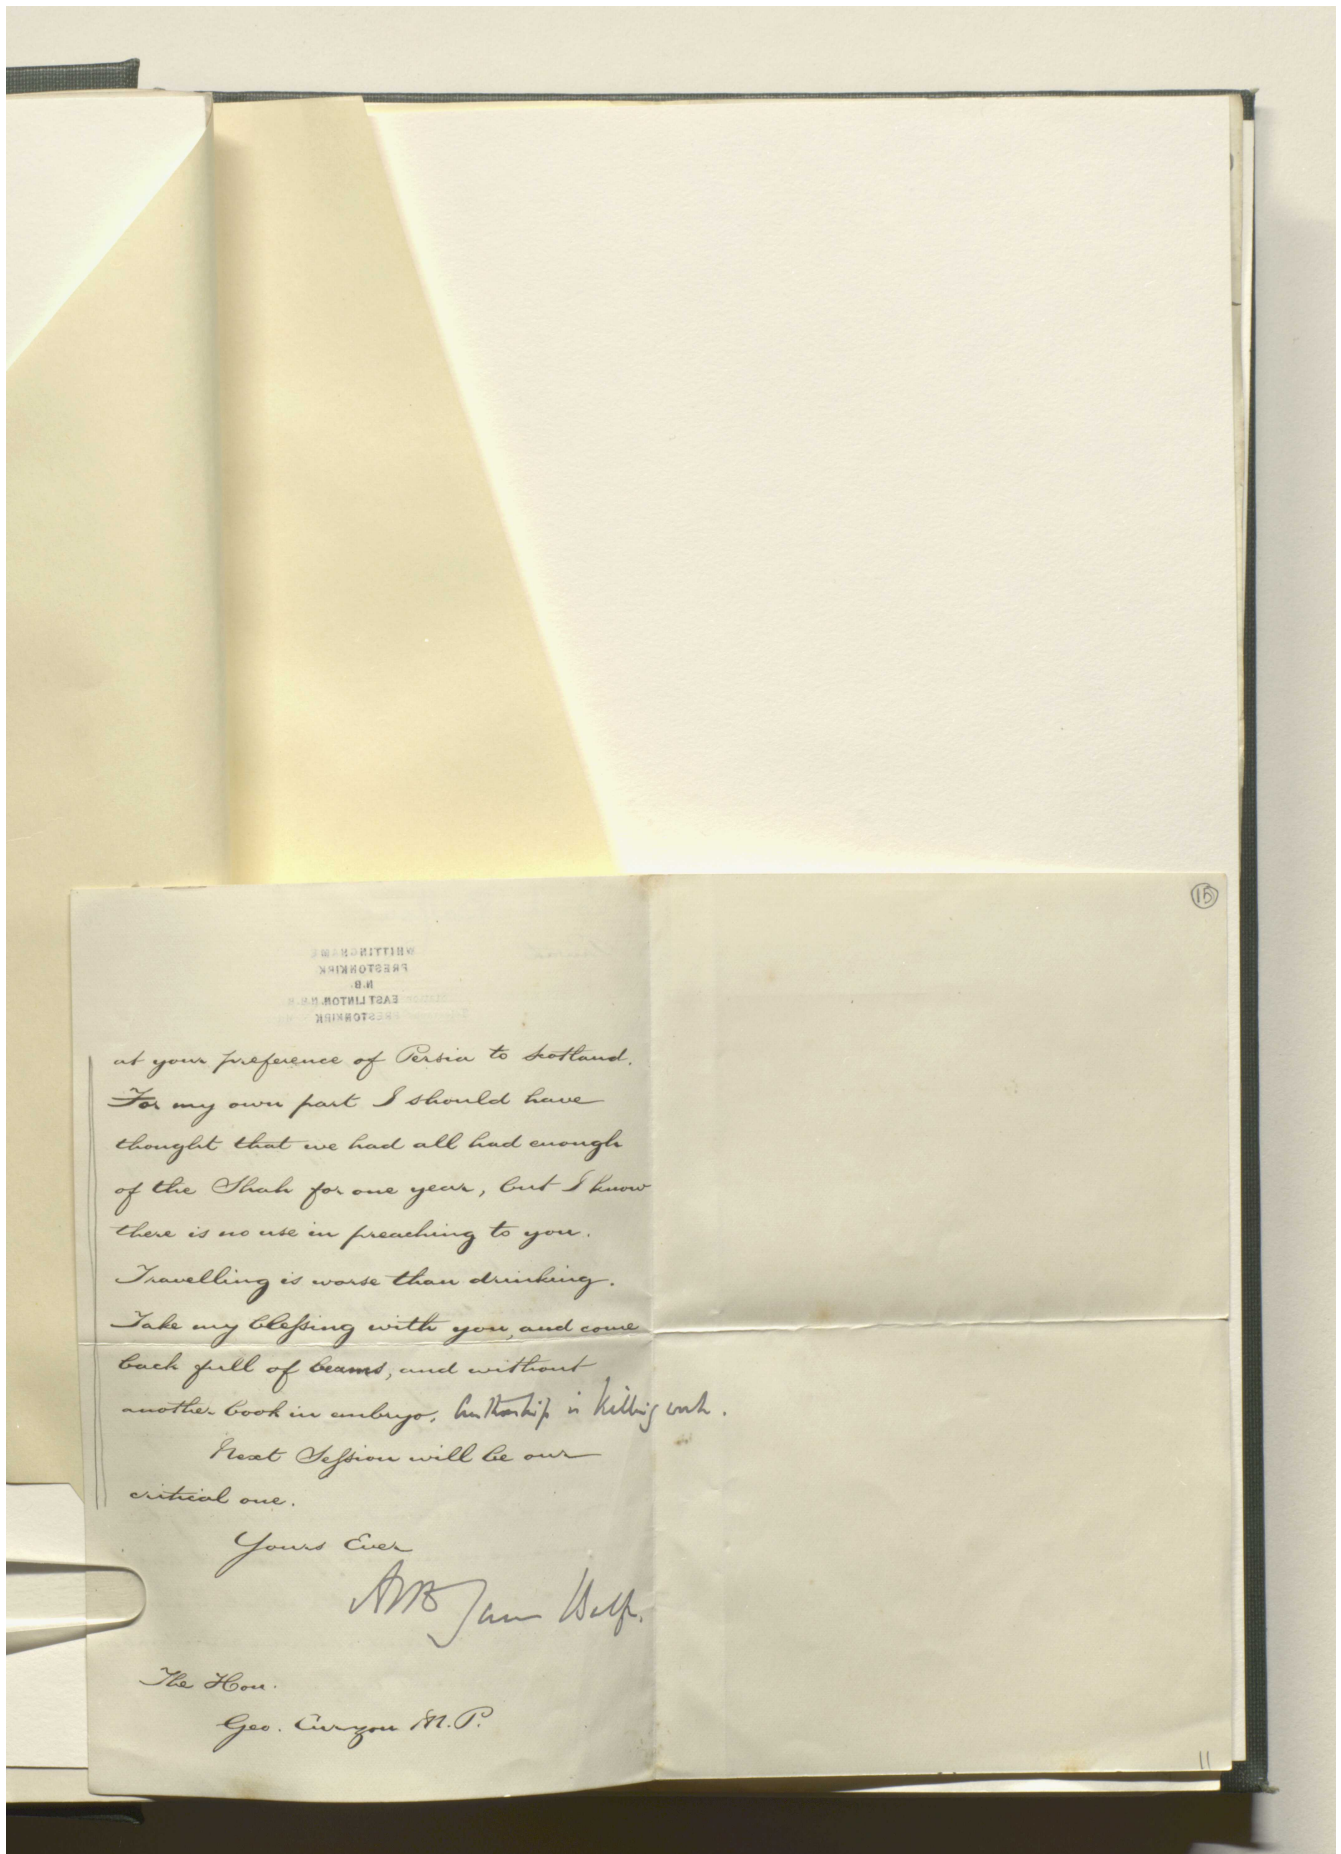 15
WHITTINGHAME
PRESTONKIRK
N.B.
EAST LINTON. N.B.R.
PRESTONKIRK
at your preference of Persia to Scotland.
For my own part I should have
thought that we had all had enough
of the Shah for one year, but I know
there is no use in preaching to you.
Travelling is worse than drinking.
Take my blessing with you, and come
back full of beams, and without
another book in embryo. Authorship is killing work.
Next Session will be our
critical one.
Yours Ever
The Hon.
Geo. Curzon M.P.
11